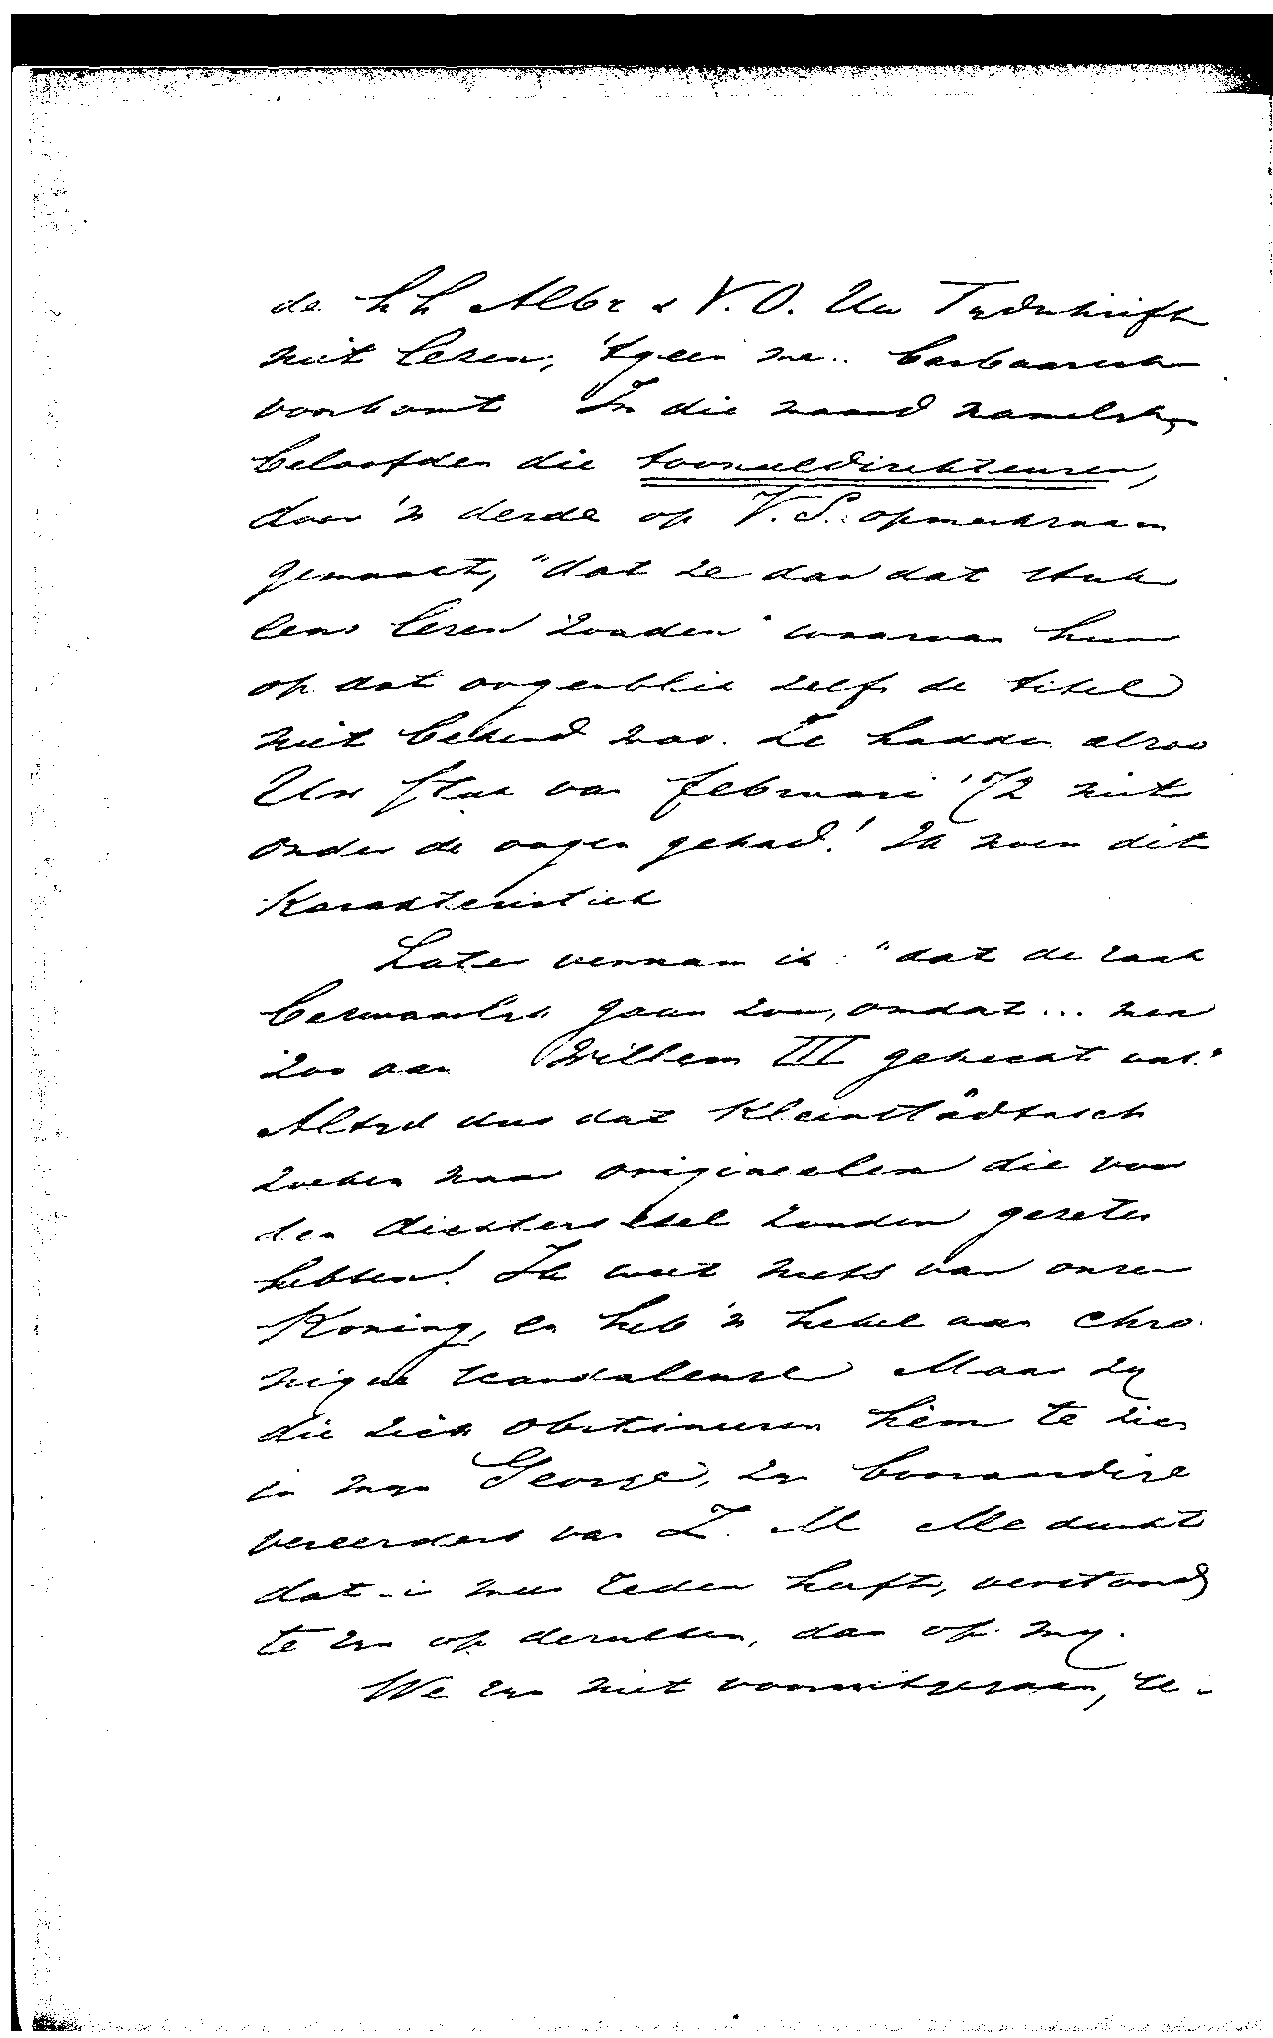 de h h Albr & V. O. Uw Tydschrift
niet lezen, 'tgeen me.. barbaarsch
voorkomt In die maand namelyk
beloofden die tooneeldirekteuren,
door 'n derde op V. S. opmerkzaam
gemaakt, "dat ze dan dat stuk
eens lezen zouden" waarvan hun
op dat oogenblik zelfs de titel
niet bekend was. Ze hadden alzoo
Uw stuk van februari '72 niet
onder de oogen gehad! Ik noem dit
Karakteristiek
Later vernam ik: "dat de zaak
bezwaarlyk gaan zou, omdat... men
zoo aan Willem III gehecht was."
Altyd dus dat Kleinstädtisch
zoeken naar origineelen die voor
den dichters ezel zouden gezeten
hebben! Ik weet niets van onzen
Koning, en heb 'n hekel aan chro-
nique scandaleuse Maar zy
die zich obstineeren hèm te zien
in myn George, zyn boosaardige
vereerders van Z. M Me dunkt
dat i meer reden heeft, verstoord
te zyn op dezulken, dan op my.
We zyn niet vooruitgegaan, se-